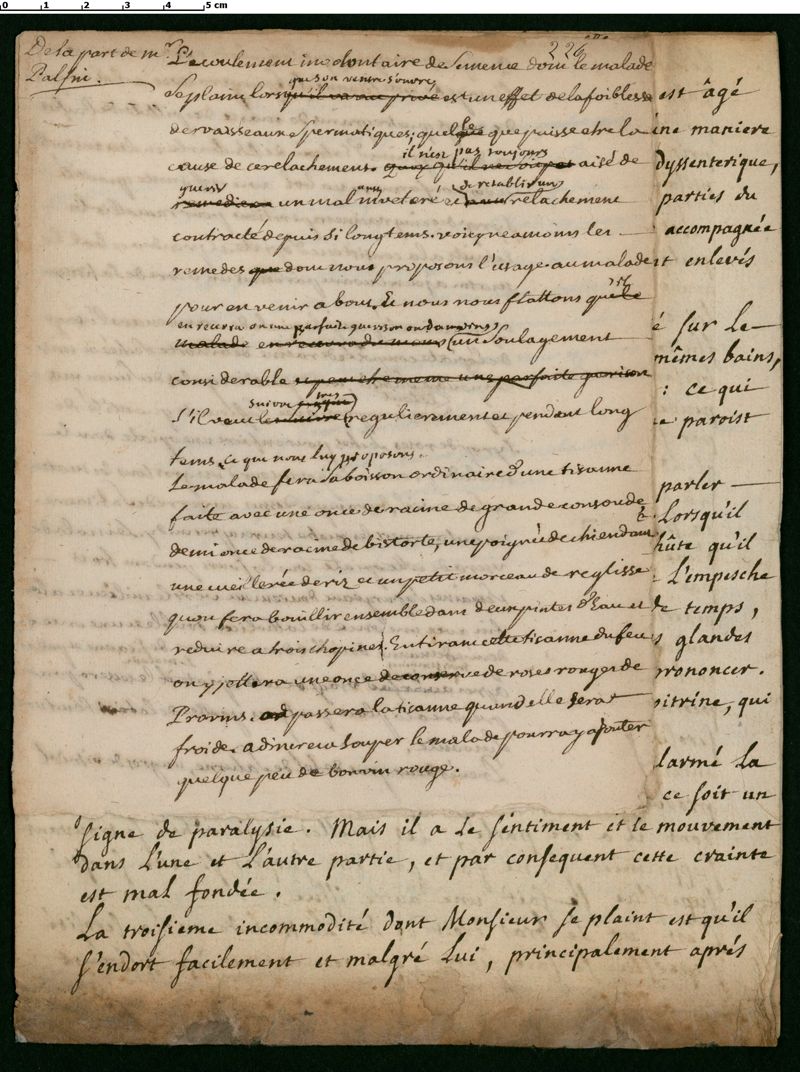 De la part de mr
Palfni.
226
L'ecoulement involontaire de semence dont le malade
que son ventre s'ouvre
se plaint lorsqu'il va au privé est un effet de la foiblesse
des vaisseaux spermatiques; quelle que puisse etre la
il n'est pas toujours
cause de ce relachement. aisé de
guerir de retablir un
remedier a un mal inveteré et relachement
contracté depuis si longtems. voicy neamoins les
remedes que dont nous proposons l'usage au malade
pour en venir a bout. Et nous nous flattons qu'il
en recevra ou une parfaite guerison ou du moins
malade en recevra du moins un soulagement
considerable et peut etre meme une parfaite guerison
suivre tres
s'il veut regulierement et pendant long
tems, ce que nous luy proposons.
Le malade fera sa boisson ordinaire d'une tisanne
faite avec une once de racine de grande consoude
demi once de racine de bistorte, une poignée de chiendant
une cueillerée de riz et un petit morceau de reglisse
qu'on fera bouillir ensemble dans deux pintes d'Eau et
reduire a trois chopines. En tirant cette tisanne du feu
on y jettera une once de conserve de roses rouges de
Provins. on passera la tisanne quand elle sera
froide. a diner et a souper le malade pourra y ajouter
quelque peu de bon vin rouge.
est âgé
ine maniere
dyssenterique,
parties du
accompagnée
t enlevés
é sur le
mêmes bains,
: ce qui
e paroist
parler
. Lorsqu'il
hûte qu'il
: L'empesche
de temps,
s glandes
prononcer.
oitrine, qui
larmé la
ce soit un
signe de paralysie. Mais il a le sentiment et le mouvement
dans l'une et l'autre partie, et par consequent cette crainte
est mal fondée.
La troisieme incommodité dont Monsieur se plaint est qu'il
s'endort facilement et malgré lui, principalement aprés